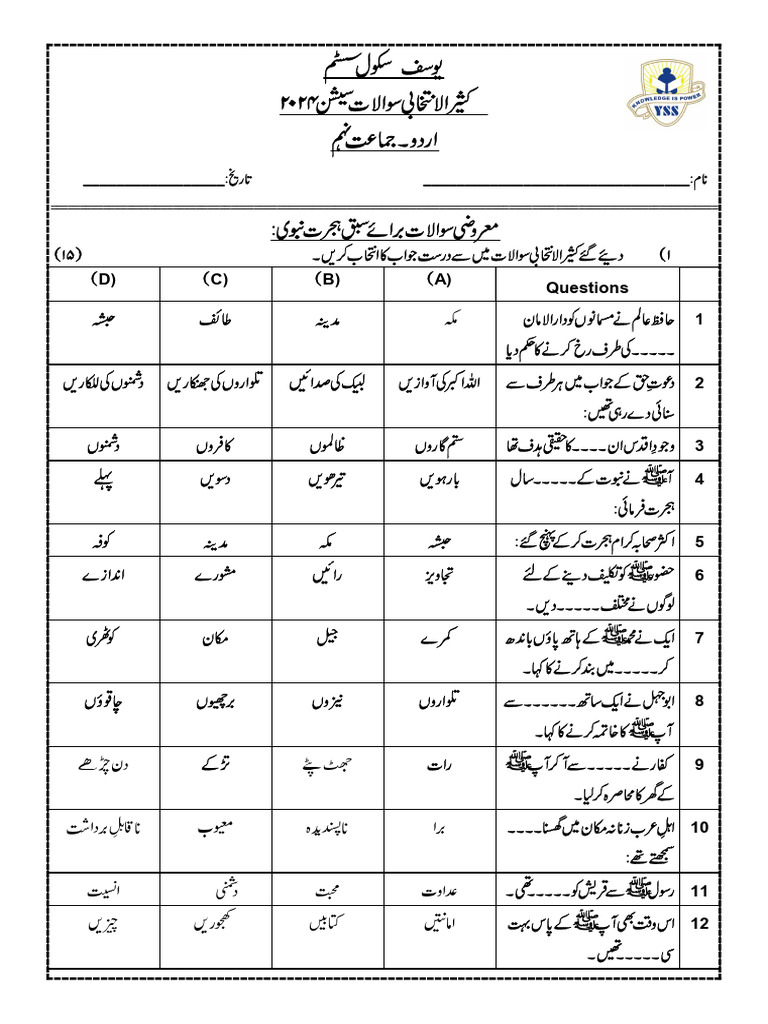 یوسف سکول سسٹم
کثیر الانتخابی سوالات سیشن ۲۰۲۴
اردو۔ جماعت نہم
KNOWLEDGE IS POWER
YSS
نام:________________________ تاریخ:________________
معروضی سوالات برائے سبق ہجرت نبوی:
۱) دیئے گئے کثیر الانتخابی سوالات میں سے درست جواب کا انتخاب کریں۔ (۱۵)
Questions (A) (B) (C) (D)
1 حافظ عالم نے مسمانوں کو دارالامان مکہ مدینہ طائف حبشہ
۔۔۔۔۔کی طرف رخ کرنے کا حکم دیا
2 دعوتِ حق کے جواب میں ہر طرف سے اللہ اکبر کی آوازیں لبیک کی صدائیں تلواروں کی جھنکاریں دشمنوں کی للکاریں
سنائی دے رہی تھیں:
3 وجودِ اقدس ان ۔۔۔۔کا حقیقی ہدف تھا ستم گاروں ظالموں کافروں دشمنوں
4 آپﷺ نے نبوت کے ۔۔۔۔۔سال بارہویں تیرھویں دسویں پہلے
ہجرت فرمائی:
5 اکثر صحابہ کرام ہجرت کر کے پہنچ گئے: حبشہ مکہ مدینہ کوفہ
6 حضورﷺ کو تکلیف دینے کے لئے تجاویز رائیں مشورے اندازے
لوگوں نے مختلف ۔۔۔۔۔دیں۔
7 ایک نے محمدﷺ کے ہاتھ پاؤں باندھ کمرے جیل مکان کوٹھری
کر۔۔۔۔۔میں بند کرنے کا کہا۔
8 ابوجہل نے ایک ساتھ ۔۔۔۔۔۔سے تلواروں نیزوں برچھیوں چاقوؤں
آپﷺ کا خاتمہ کرنے کا کہا۔
9 کفار نے ۔۔۔۔۔سے آ کر آپﷺ رات جھٹ پٹے تڑکے دن چڑھے
کے گھر کا محاصرہ کر لیا۔
10 اہلِ عرب زنانہ مکان میں گھسنا۔۔۔۔ برا ناپسندیدہ معیوب ناقابلِ برداشت
سمجھتے تھے:
11 رسولﷺ سے قریش کو ۔۔۔۔۔تھی۔ عداوت محبت دشمنی انسیت
12 اس وقت بھی آپﷺ کے پاس بہت امانتیں کتابیں کھجوریں چیزیں
سی ۔۔۔۔۔تھیں۔